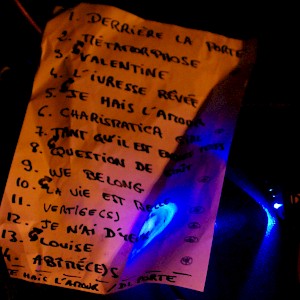 1. DERRIÈRE LA PORTE
2. MÉTAMORPHOSE
3. VALENTINE
4. L'IVRESSE RÊVÉE
5. JE HAIS L'AMOUR
6. CHARISMATICA
7. TANT QU'IL EST ENCORE TEMPS
8. QUESTION DE
9. WE BELONG
10. LA VIE EST
11. VERTIGE(S)
12. JE N'AI D'YEUX
13. LOUISE
14. ABÎMÉ(E)S
JE HAIS L'AMOUR / PORTE